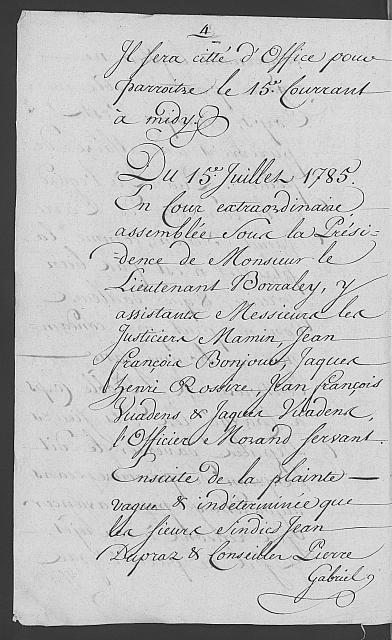 4
Il sera citté d'Office pour
parroitre le 15.e Courrant
à midy.
Du 15.e Juillet 1785.
En Cour extraordinaire
assemblée sous la Prési-
dence de Monsieur le
Lieutenant Borraley, y
assistants Messieurs les
Justiciers Mamin, Jean
françois Bonjour, Jaques
henri Rossire, Jean françois
Vuadens & Jaques Vuadens,
l'Officier Morand servant.
Ensuite de la plainte
vague & indéterminée que
les sieurs Sindic Jean
Dupraz & Conseiller Pierre
Gabriel